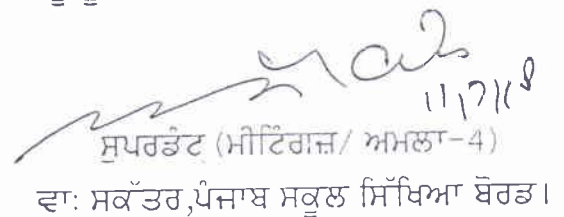 ਸੁਪਰਡੰਟ (ਮੀਟਿੰਗਜ਼/ ਅਮਲਾ-4)
ਵਾ: ਸਕੱਤਰ,ਪੰਜਾਬ ਸਕੂਲ ਸਿੱਖਿਆ ਬੋਰਡ।